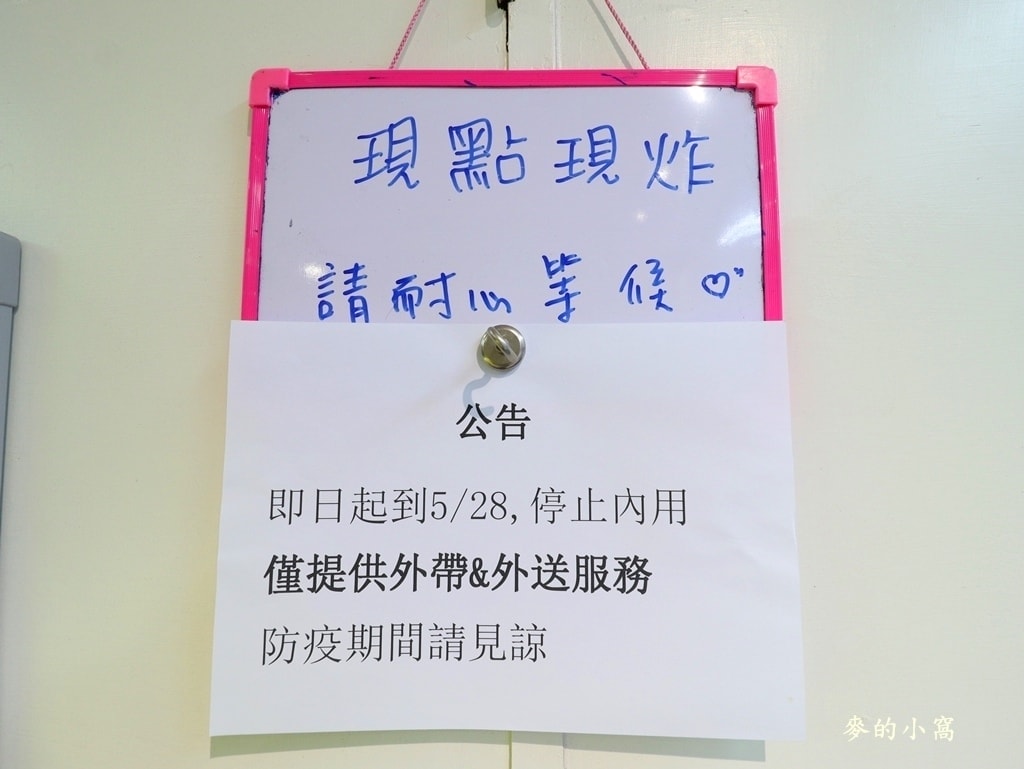 現點現炸
請耐心等候♡"
公告
即日起到5/28,停止內用
僅提供外帶&外送服務
防疫期間請見諒
麥的小窩